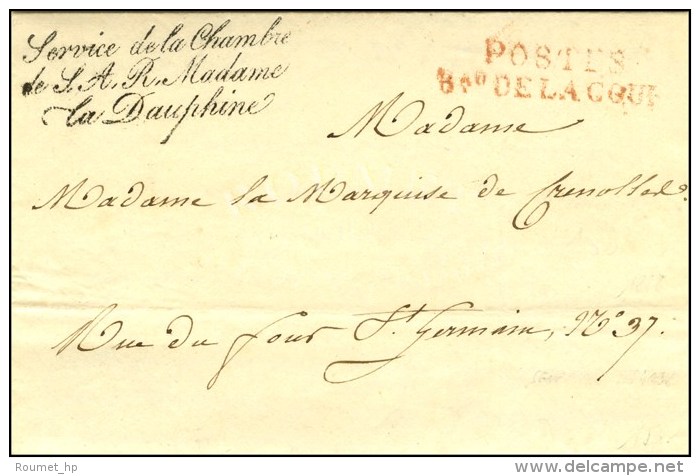 Service de la Chambre
de S. A. R. Madame
la Dauphine
POSTES
Bau DE LA COUR
Madame
Madame la Marquise de Crenolles
Rue du four St. Germain, No. 37.
Roumet_hp
www.delcampe.net